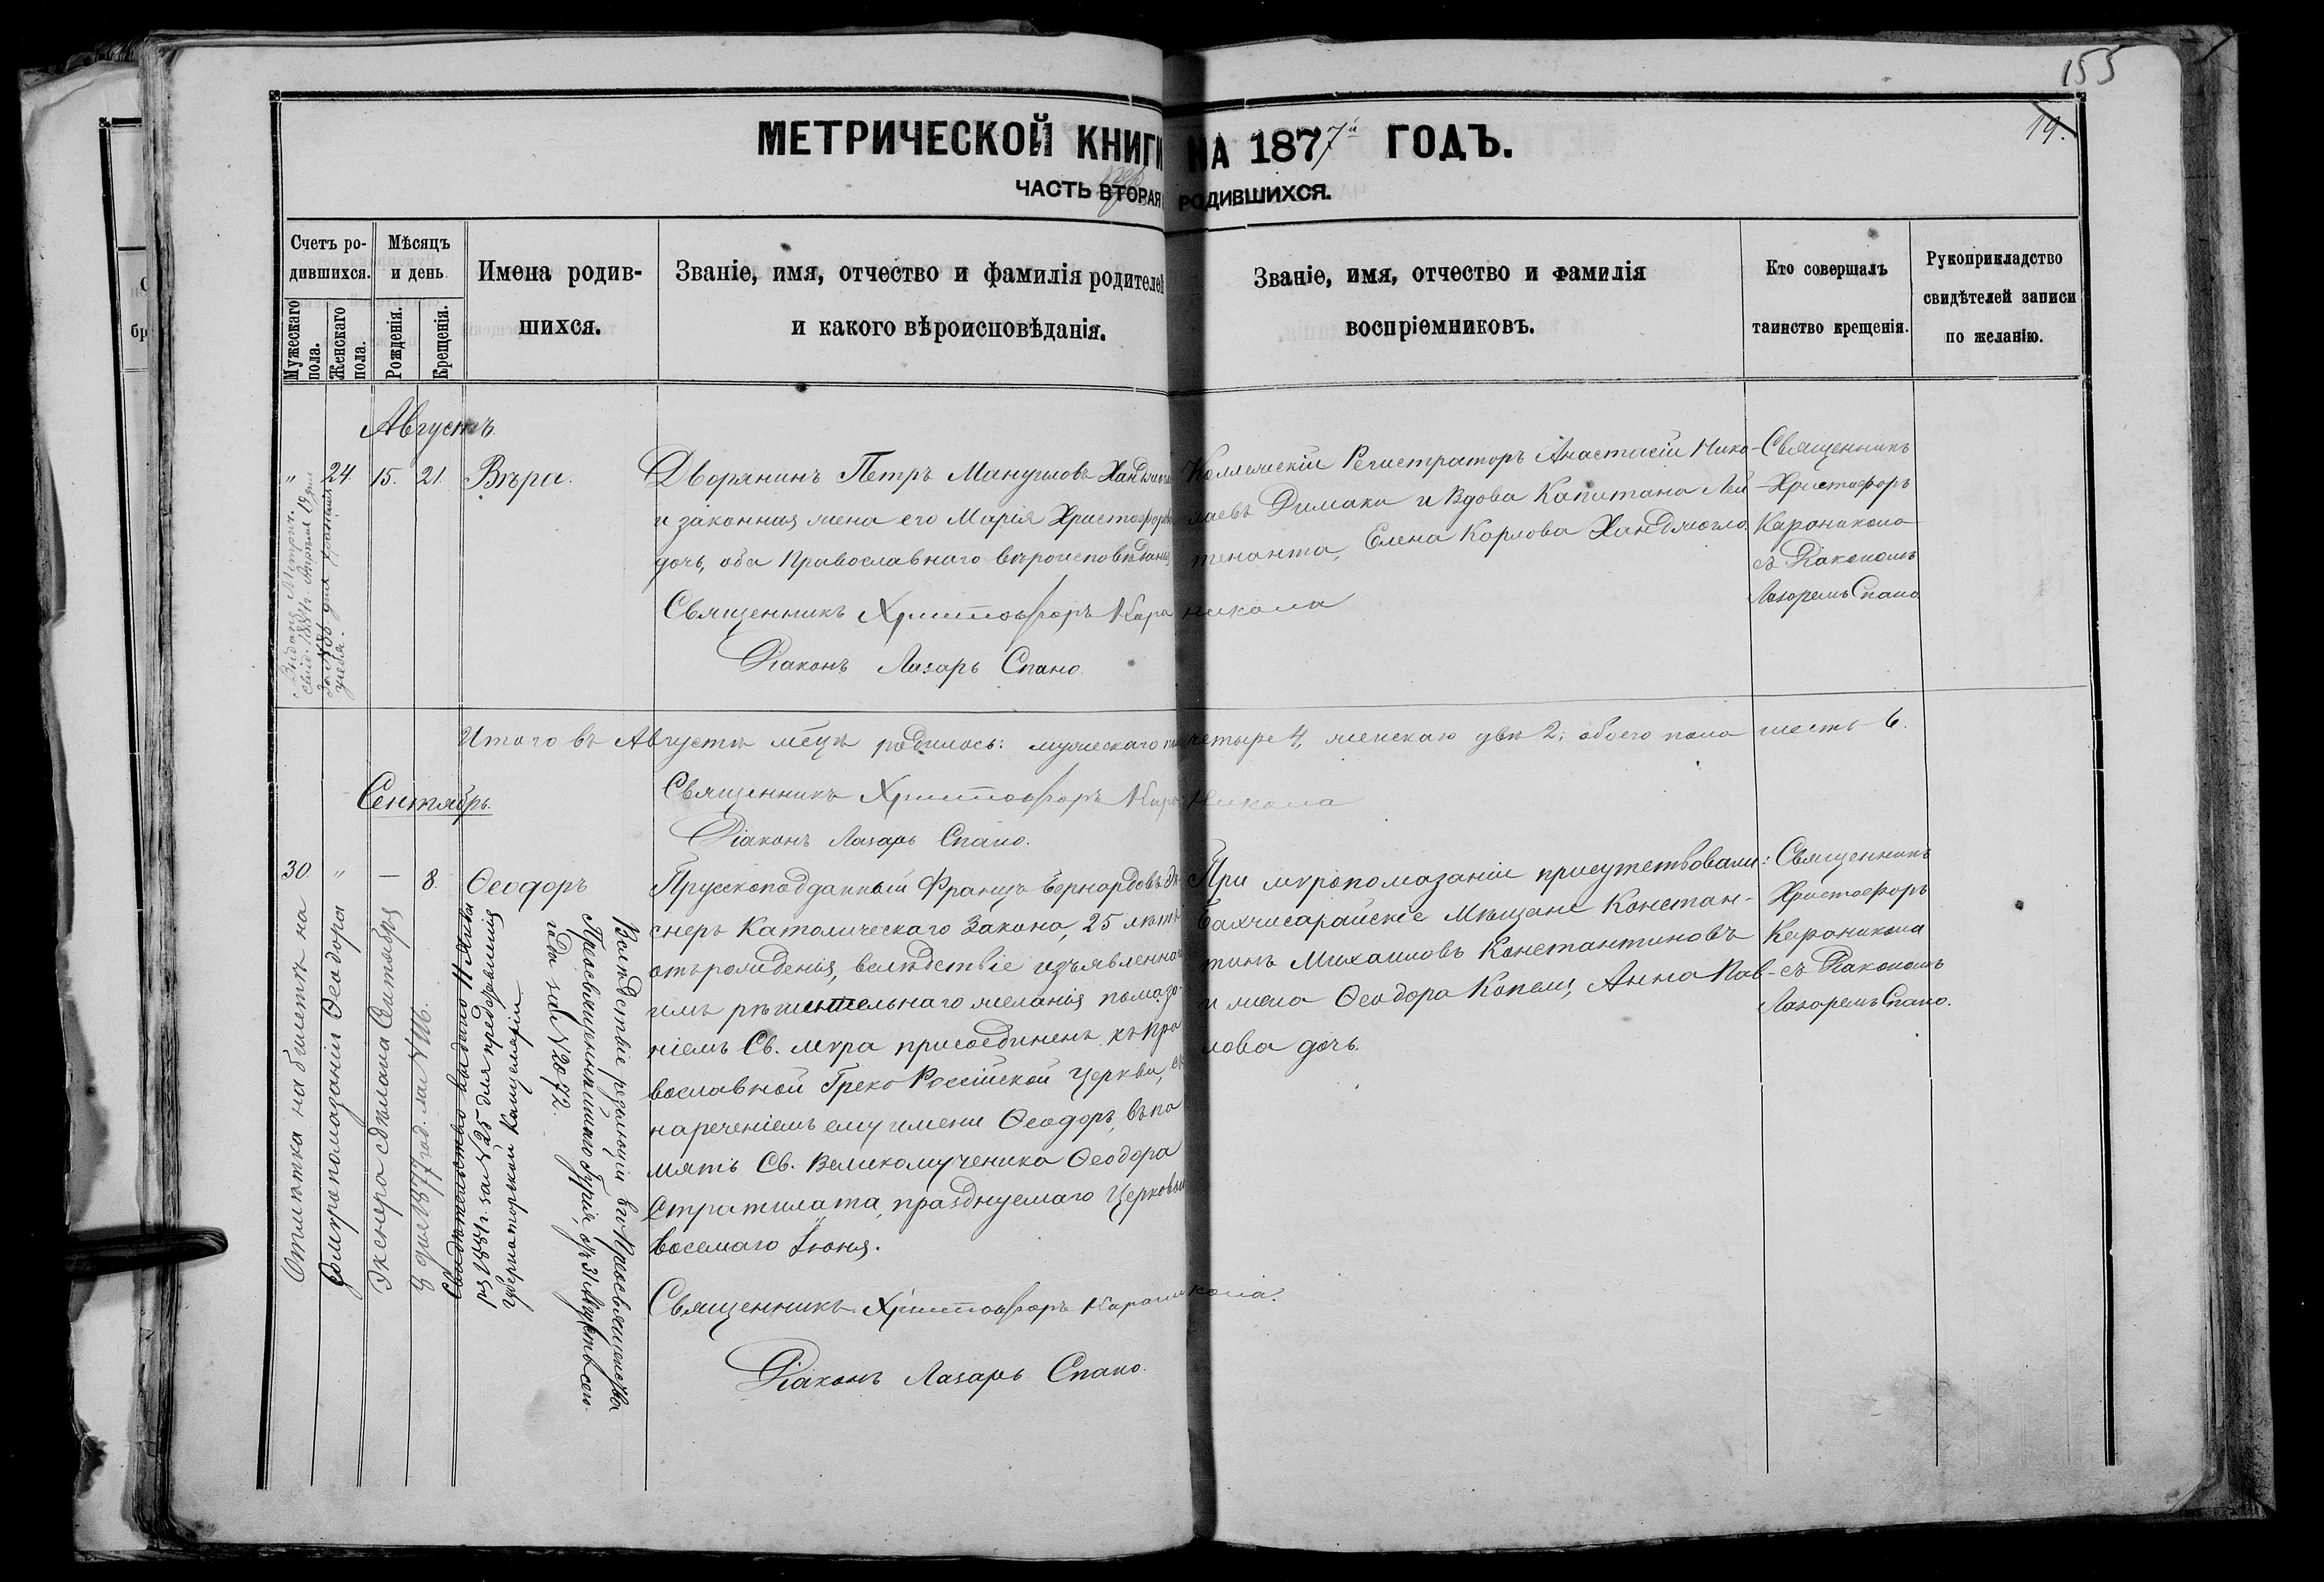 155
19.
МЕТРИЧЕСКОЙ КНИГИ НА 1877й ГОДЪ.
ЧАСТЬ ВТОРАЯ РОДИВШИХСЯ.
Счетъ ро-
дившихся.
Мужескаго
пола.
Женскаго
пола.
Мѣсяцъ
и день
Рожденія.
Крещенія.
Имена родив-
шихся.
Званіе, имя, отчество и фамилія родителей
и какого вѣроисповѣданія.
Званіе, имя, отчество и фамилія
воспріемниковъ.
Кто совершалъ
таинство крещенія.
Рукоприкладство
свидѣтелей записи
по желанію.
Августъ
" 24. 15. 21. Вѣра.
Дворянинъ Петръ Мануиловъ
и законная жена его Марія Христофорова
дочь, оба Православнаго вѣроисповѣданія
Священникъ Христофоръ Караникола
Діаконъ Лазарь Спано.
Коллежскій Регистраторъ Анастасій Нико-
лаевъ Димаки и Вдова Капитана Лей-
тенанта, Елена Карлова Ханджогло
Священникъ
Христофоръ
Караникола
съ Діакономъ
Лазаремъ Спано
Выдана Метрич.
свид. 1884г. Апрѣля 19 дня
за №86 для
Итого въ Августѣ мѣцѣ родилось: мужескаго пола четыре 4, женскаго двѣ 2; обоего пола шесть 6.
Священникъ Христофоръ Караникола
Діаконъ Лазарь Спано.
Сентябрь.
30 " — 8. Ѳеодоръ
Прусскоподданный Францъ Бернардовъ Эк
снеръ Католическаго Закона, 25 лѣтъ
отъ рожденія, вслѣдствіе изъявленнаго
имъ рѣшительнаго желанія помаза-
ніемъ Св. мѵра присоединенъ къ Пра
вославной Греко Россійской Церкви, съ
нареченіемъ ему имени Ѳеодоръ, въ па
мять Св. Великомученика Ѳеодора
Стратилата, празднуемаго Церковью
восьмаго Іюня.
Священникъ Христофоръ Караникола.
Діаконъ Лазарь Спано.
При мѵропомазаніи присутствовали:
Бахчисарайскіе Мѣщане Констан-
тинъ Михаиловъ Константиновъ
и жена Ѳеодора Копели, Анна Пав-
лова дочь.
Священникъ
Христофоръ
Караникола
съ Діакономъ
Лазаремъ Спано.
Отмѣтка на билетѣ на
мѵропомазаніи Ѳеодора
Экснера сдѣлана Октября
8 дня 1877 год. за №116.
Свидѣтельство выдано 11 Янва
ря 1884г. за №25 для представленія
Губернаторской Канцеляріи
Вслѣдствіе резолюціи Его Преосвященства
Преосвященнѣйшаго Гурія, отъ 31 Августа сего
года за №2072.